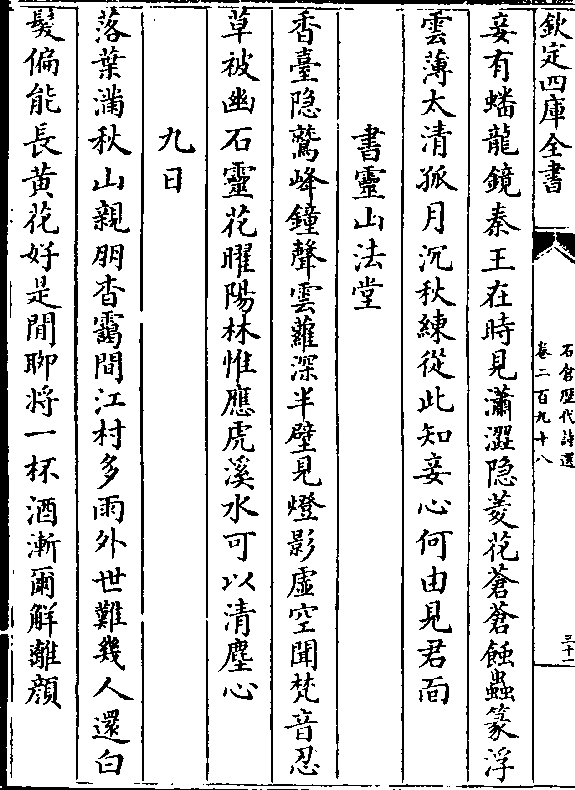 欽定四庫全書
石倉歷代詩選
卷二百九十八
三十一
妾有蟠龍鏡秦王在時見瀟澀隠菱花蒼蒼蝕蟲篆浮
雲薄太清孤月沉秋練從此知妾心何由見君面
書靈山法堂
香臺隠鷲峰鐘聲雲蘿深半壁見燈影虛空聞梵音忍
草被幽石靈花曜陽林惟應虎溪水可以清塵心
九日
落葉滿秋山親朋杳靄間江村多雨外世難幾人還白
髮偏能長黄花好是閒聊将一杯酒漸爾解離顔